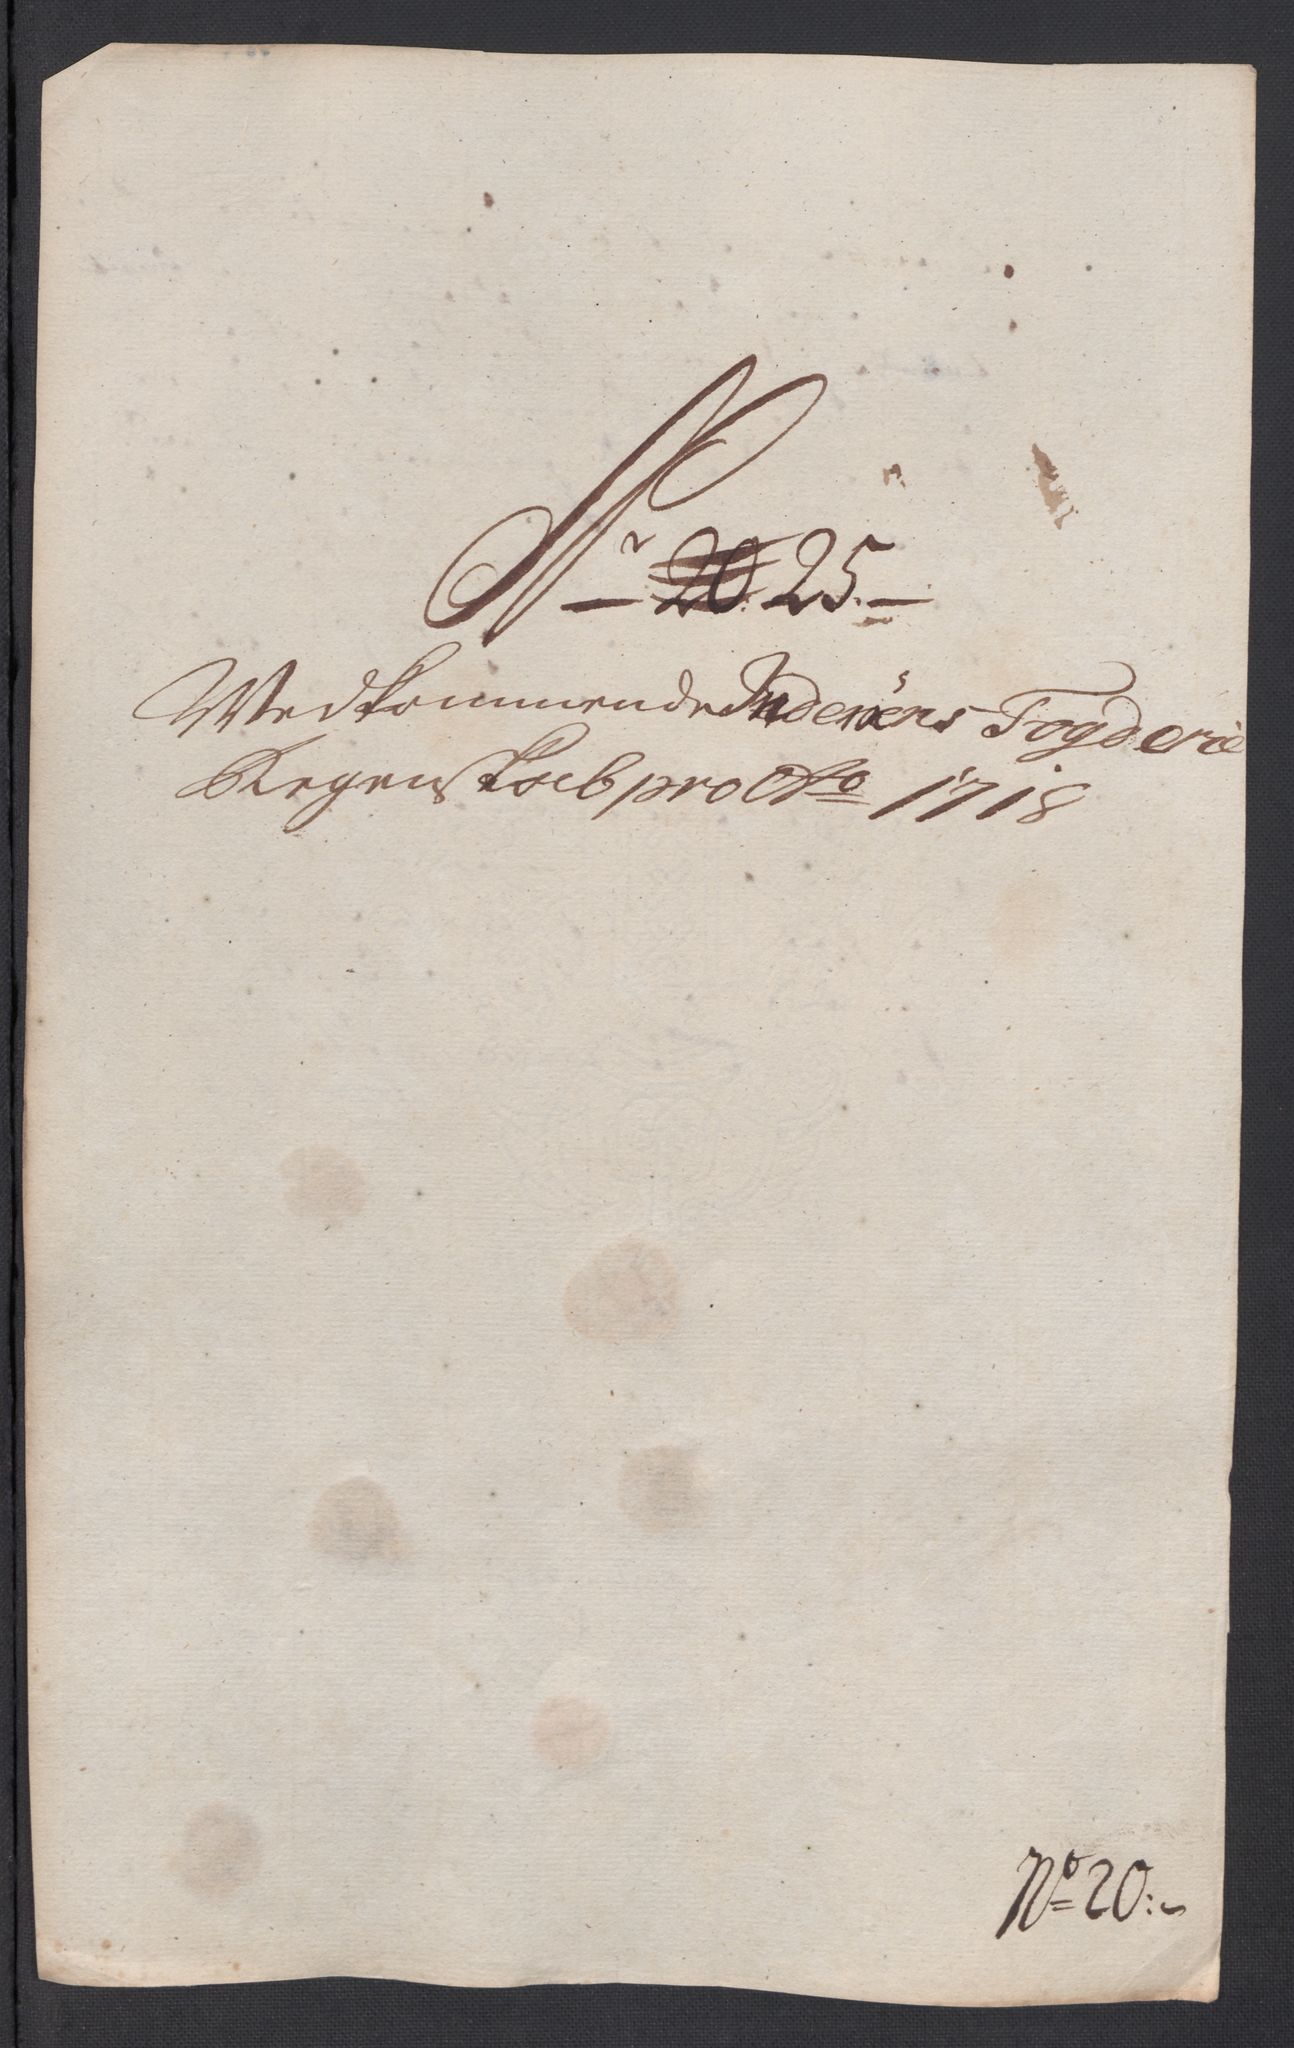 Nr 20. 25.
Wedkommende Inderöens Fogderie
Regenskab pro Ao 1718
No 20: